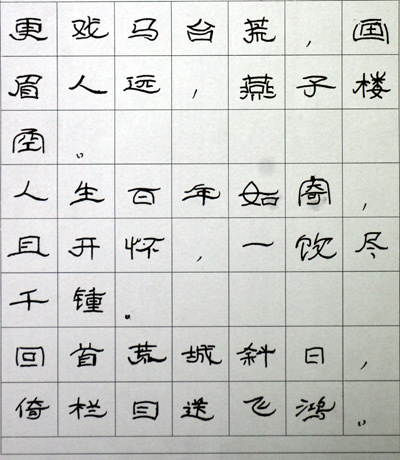 更戏马台荒，画
眉人远，燕子楼
空。
人生百年如寄，
且开怀，一饮尽
千锺。
回首荒城斜日，
倚栏目送飞鸿。